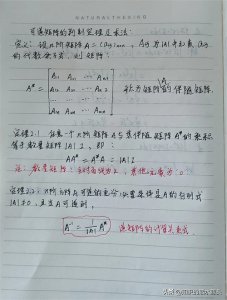 NATURALTHEKING
可逆矩阵的判别定理及求法:
定义: 设n阶矩阵A=(aij)n×n, Aij为|A|中元素aij
的代数余子式, 则矩阵:
A11 A21 ... An1
A12 A22 ... An2
A* =
A1n A2n ... Ann
称为矩阵A的伴随矩阵
定理2.1 任意一个n阶矩阵A与其伴随矩阵A*的乘积
等于数量矩阵|A|I, 即:
AA* = A*A = |A|I
注: 数量矩阵: 主对角线为λ, 其他元素为0
定理2.2: n阶矩阵A可逆的充分必要条件是A的行列式
|A|≠0, 且当A可逆时,
A⁻¹ = 1/|A| A*
逆矩阵的计算公式
头条